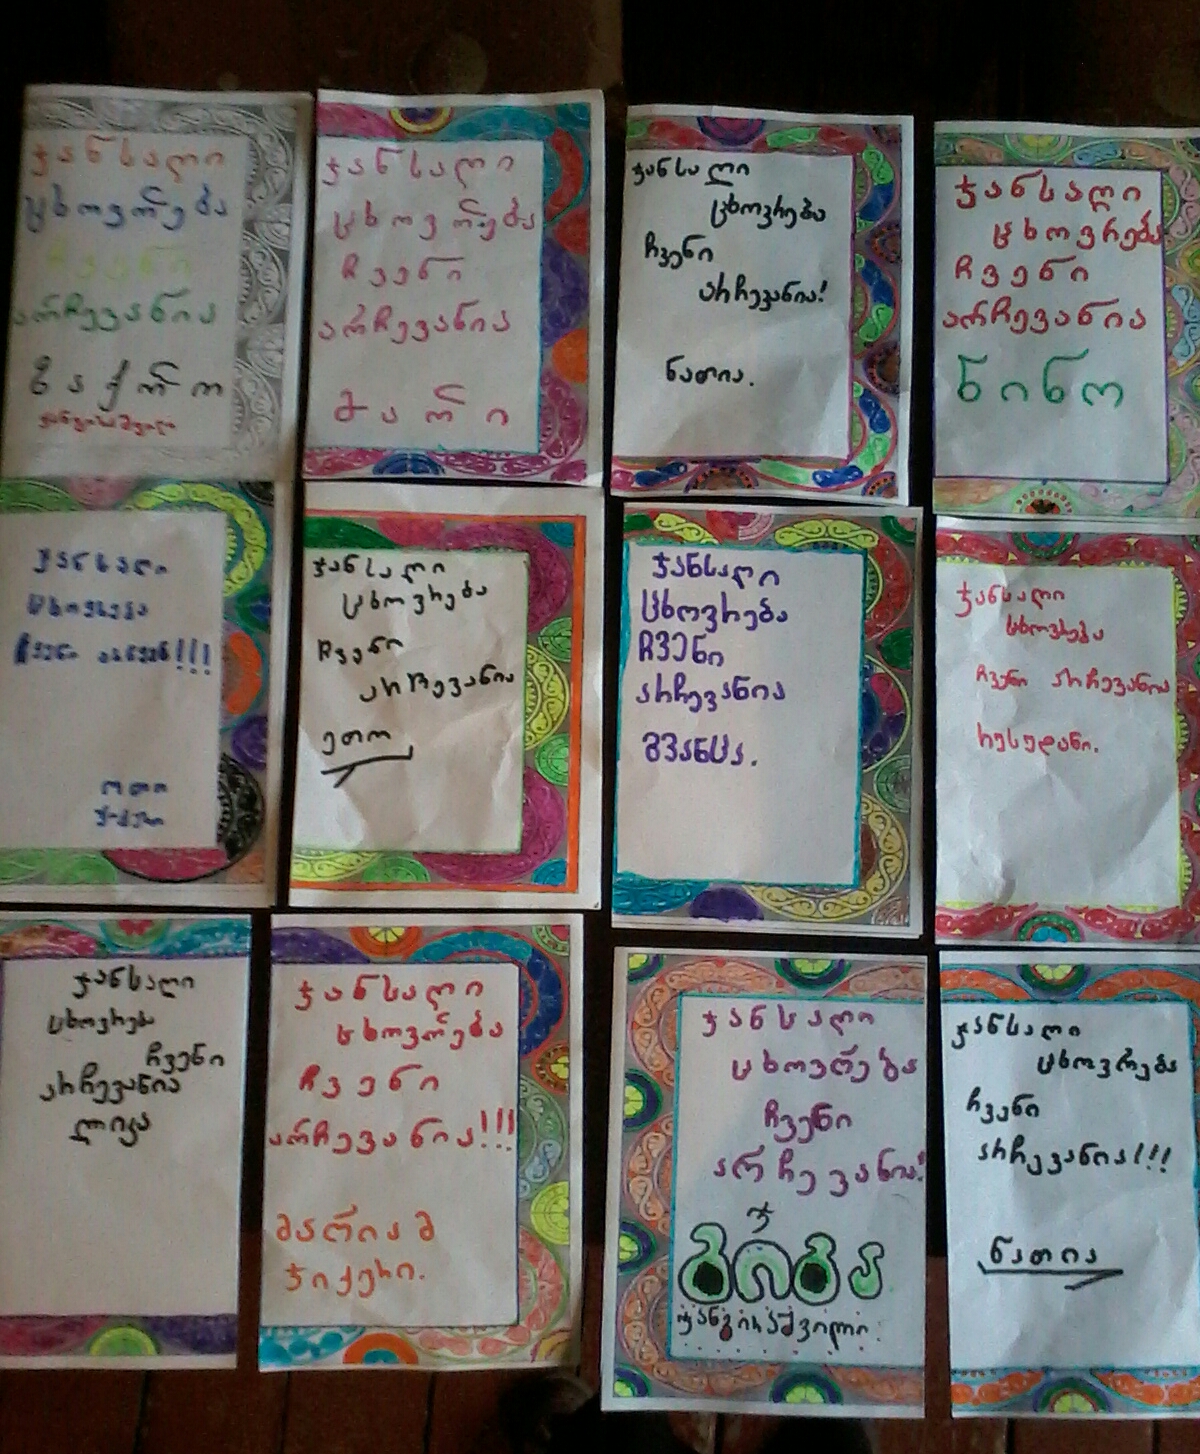 ჯანსაღი
ცხოვრება
ჩვენი
არჩევანია
ბაქრო
ჯანგირაშვილი
ჯანსაღი
ცხოვრება
ჩვენი
არჩევანია
მარი
ჯანსაღი
ცხოვრება
ჩვენი
არჩევანია!
ნათია.
ჯანსაღი
ცხოვრება
ჩვენი
არჩევანია
ნინო
ჯანსაღი
ცხოვრება
ჩვენი
ოთო
ჯანსაღი
ცხოვრება
ჩვენი
არჩევანია
ეთო
ჯანსაღი
ცხოვრება
ჩვენი
არჩევანია
გვანცა.
ჯანსაღი
ცხოვრება
ჩვენი არჩევანია
რუსუდანი.
ჯანსაღი
ცხოვრება
ჩვენი
არჩევანია
ლიკა
ჯანსაღი
ცხოვრება
ჩვენი
არჩევანია!!!
მარიამ
ჯიქური.
ჯანსაღი
ცხოვრება
ჩვენი
არჩევანია!
ჯანგირაშვილი
ჯანსაღი
ცხოვრება
ჩვენი
არჩევანია!!!
ნათია